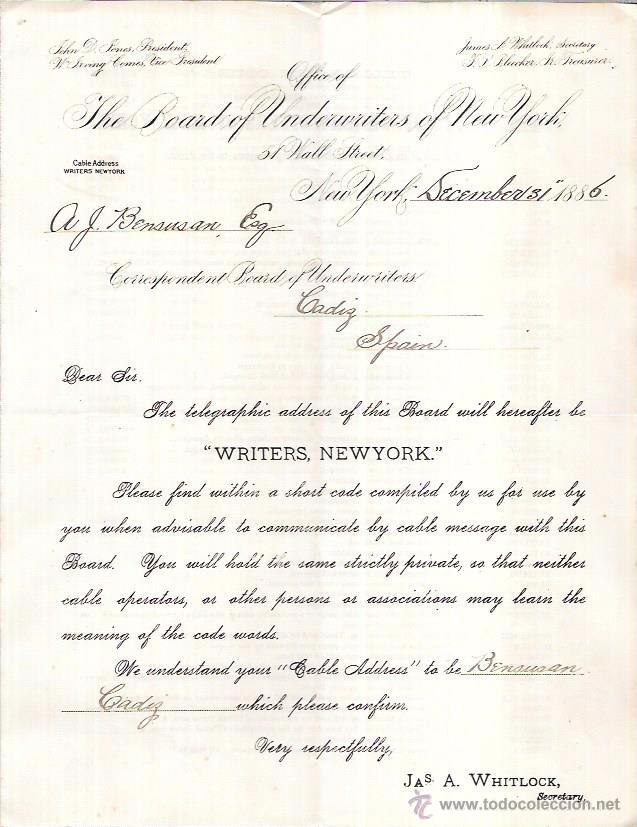 John D. Jones, President,
Wm Irving Comes, Vice President
James A. Whitlock, Secretary
T. P. Bleecker, Jr. Treasurer
Office of
The Board of Underwriters of New York,
51 Wall Street,
Cable Address
WRITERS NEWYORK
New York, December 31" 1886.
A J. Bensusan, Esq
Correspondent Board of Underwriters
Cadiz.
Spain.
Dear Sir.
The telegraphic address of this Board will hereafter be
"WRITERS, NEWYORK."
Please find within a short code compiled by us for use by
you when advisable to communicate by cable message with this
Board. You will hold the same strictly private, so that neither
cable operators, or other persons or associations may learn the
meaning of the code words.
We understand your "Cable Address" to be Bensusan
Cadiz which please confirm.
Very respectfully,
JAS. A. WHITLOCK,
Secretary.
www.todocoleccion.net